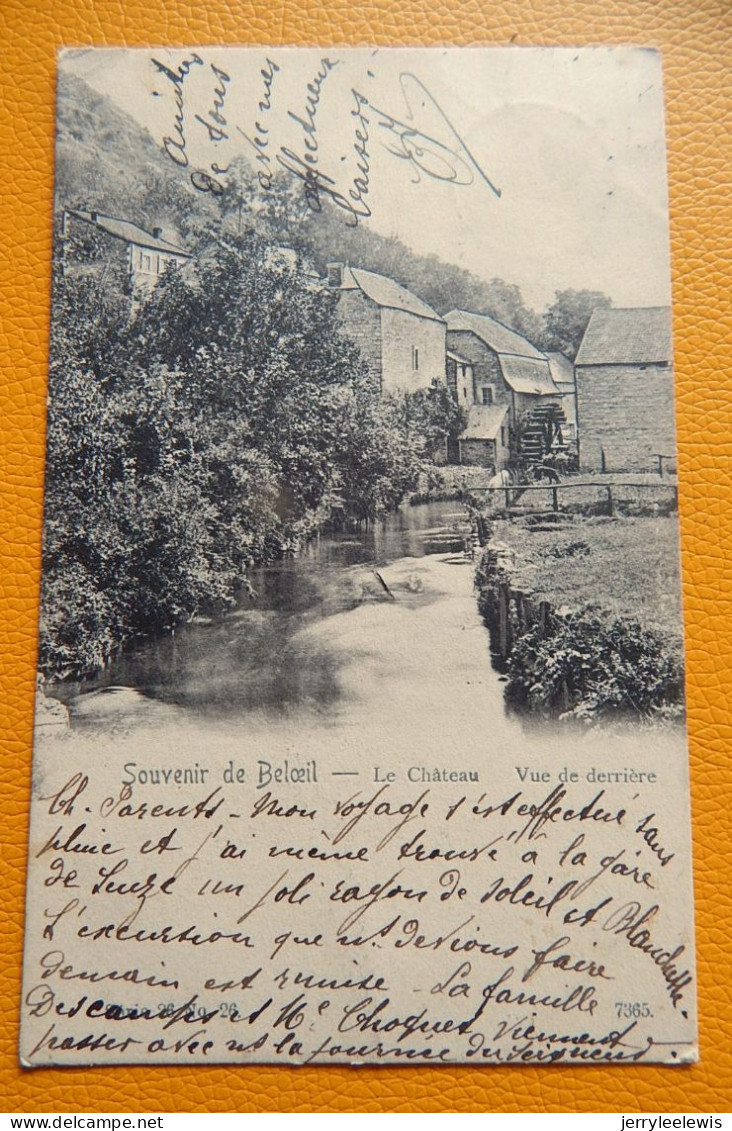 Amitiés
de tous
avec mes
affectueux
baisers.
Souvenir de Belœil — Le Château Vue de derrière
Ch. Parents - Mon voyage s'est effectué sans
pluie et j'ai même trouvé à la gare
de Leuze un joli rayon de soleil et Blanchette
L'excursion que nt. devions faire
demain est remise - La famille
Série 26 No. 26. 7365.
Descamps et Me Choquet viennent
passer avec nt la journée du
jerryleelewis